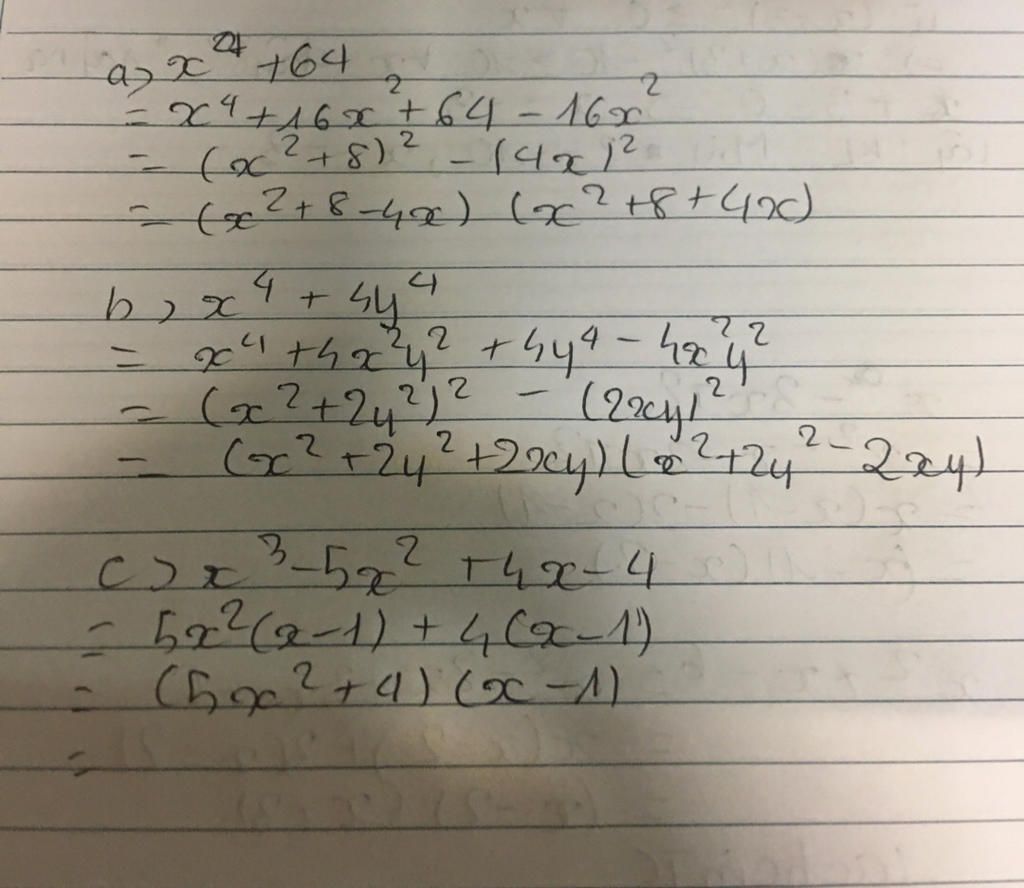 a) x⁴ + 64
= x⁴ + 16x² + 64 - 16x²
= (x² + 8)² - (4x)²
= (x² + 8 - 4x) (x² + 8 + 4x)
b) x⁴ + 4y⁴
= x⁴ + 4x²y² + 4y⁴ - 4x²y²
= (x² + 2y²)² - (2xy)²
= (x² + 2y² + 2xy) (x² + 2y² - 2xy)
c) x³ - 5x² + 4x - 4
= 5x²(x - 1) + 4(x - 1)
= (5x² + 4) (x - 1)
=